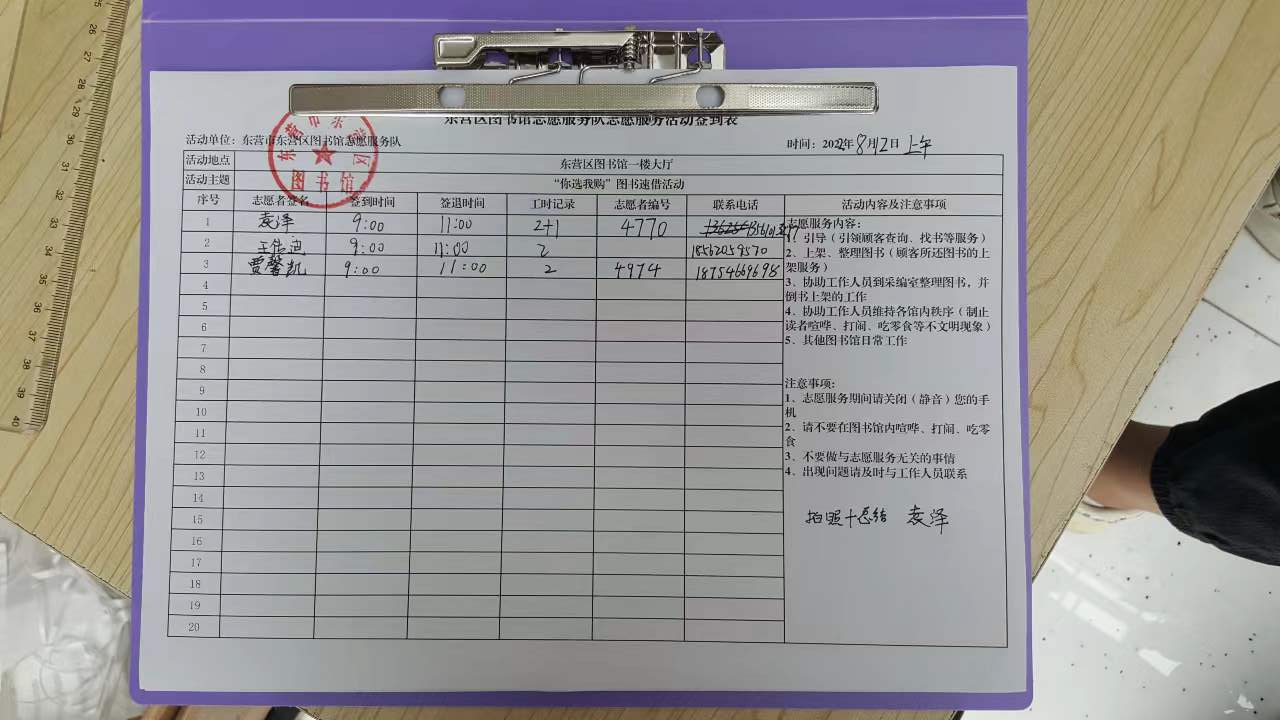 东营区图书馆志愿服务队志愿服务活动签到表
活动单位：东营市东营区图书馆志愿服务队
时间：2022年8月12日 上午
活动地点 东营区图书馆一楼大厅
活动主题 “你选我购”图书速借活动
序号 志愿者签名 签到时间 签退时间 工时记录 志愿者编号 联系电话 活动内容及注意事项
1 袁泽 9:00 11:00 2+1 4770
2 王伟迪 9:00 11:00 2 18562059570
3 贾馨凯 9:00 11:00 2 4974 18754669698
4
5
6
7
8
9
10
11
12
13
14
15
16
17
18
19
20
志愿服务内容：
1、引导（引领顾客查询、找书等服务）
2、上架、整理图书（顾客所还图书的上
架服务）
3、协助工作人员到采编室整理图书，并
倒书上架的工作
4、协助工作人员维持各馆内秩序（制止
读者喧哗、打闹、吃零食等不文明现象）
5、其他图书馆日常工作
注意事项：
1、志愿服务期间请关闭（静音）您的手
机
2、请不要在图书馆内喧哗、打闹、吃零
食
3、不要做与志愿服务无关的事情
4、出现问题请及时与工作人员联系
拍照+总结 袁泽
东营市东营区
图书馆
25
26
27
28
29
30
31
32
33
34
35
36
37
38
39
40